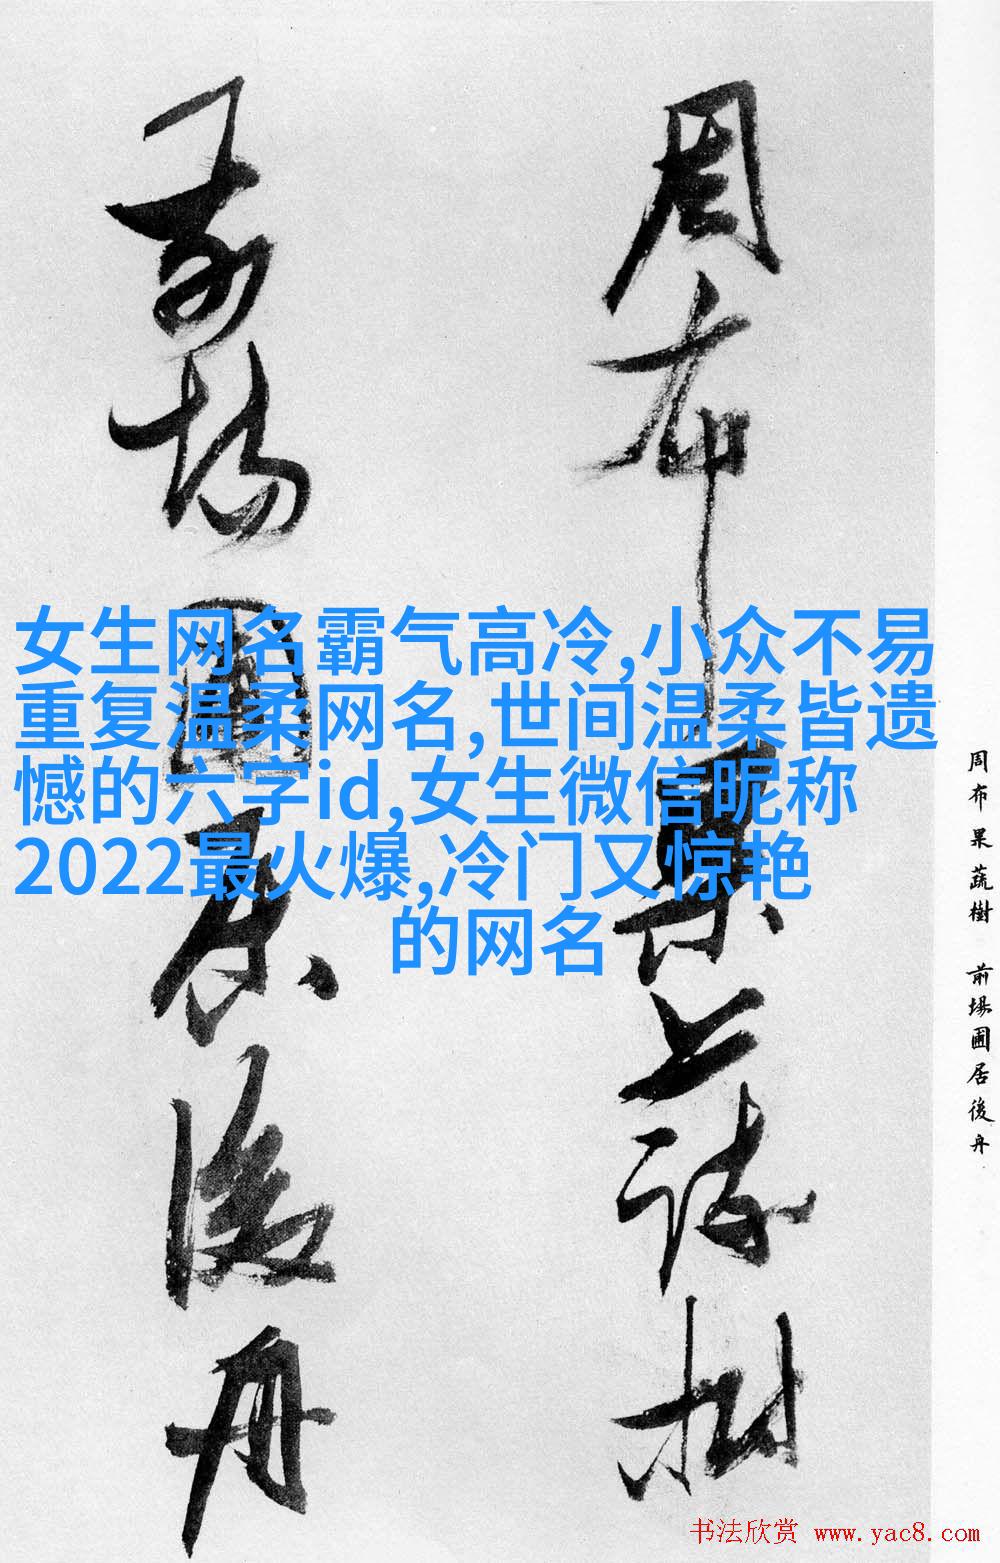 周布果蔬樹
前場圃居後舟
女生网名霸气高冷,小众不易
重复温柔网名,世间温柔皆遗
憾的六字id,女生微信昵称
2022最火爆,冷门又惊艳
的网名
周布果蔬樹 前場圃居後舟
书法欣赏 www.yac8.com